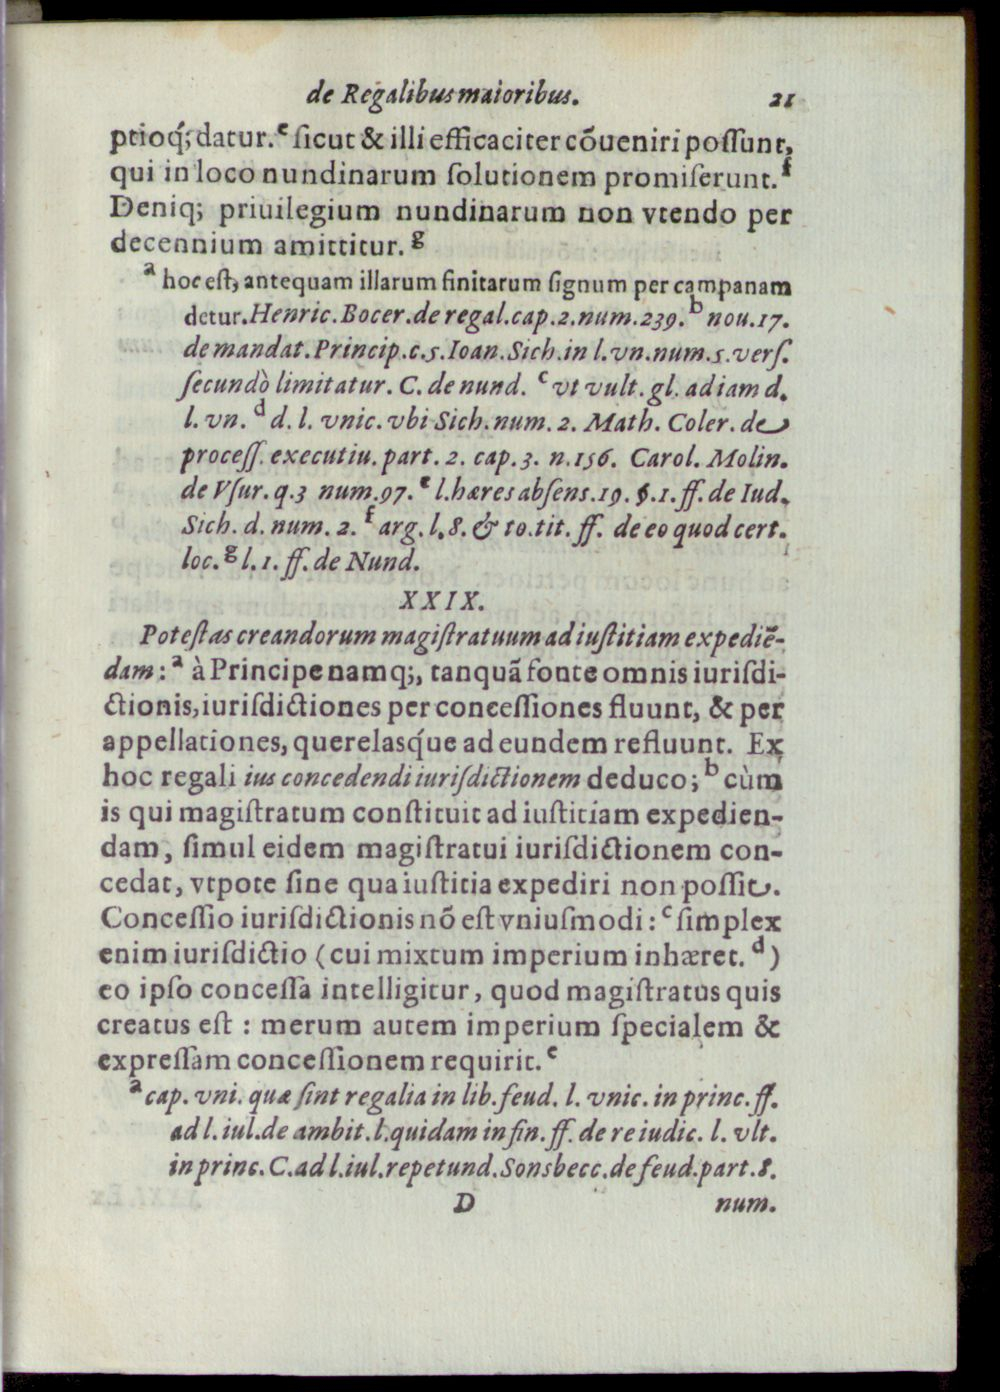 de Regalibus maioribus. 21
ptioq́; datur.ᵉ ſicut & illi efficaciter cõueniri poſſunt,
qui in loco nundinarum ſolutionem promiſerunt.ᶠ
Deniq; priuilegium nundinarum non vtendo per
decennium amittitur.ᵍ
ᵃ hoc eſt, antequam illarum finitarum ſignum per campanam
detur. Henric. Bocer. de regal. cap. 2. num. 239. ᵇ nou. 17.
de mandat. Princip. c. 5. Ioan. Sich. in l. vn. num. 5. verſ.
ſecundò limitatur. C. de nund. ᶜ vt vult. gl. ad iam d.
l. vn. ᵈ d. l. vnic. vbi Sich. num. 2. Math. Coler. de
proceſſ. executiu. part. 2. cap. 3. n. 156. Carol. Molin.
de Vſur. q. 3 num. 97. ᵉ l. hæres abſens. 19. §. 1. ff. de Iud.
Sich. d. num. 2. ᶠ arg. l. 8. & to. tit. ff. de eo quod cert.
loc. ᵍ l. 1. ff. de Nund.
XXIX.
Poteſtas creandorum magiſtratuum ad iuſtitiam expediẽ-
dam: ᵃ à Principe namq;, tanquã fonte omnis iuriſdi-
ctionis, iuriſdictiones per conceſſiones fluunt, & per
appellationes, querelasq́ue ad eundem refluunt. Ex
hoc regali ius concedendi iuriſdictionem deduco; ᵇ cùm
is qui magiſtratum conſtituit ad iuſtitiam expedien-
dam, ſimul eidem magiſtratui iuriſdictionem con-
cedat, vtpote ſine qua iuſtitia expediri non poſſit.
Conceſſio iuriſdictionis nõ eſt vniuſmodi: ᶜ ſimplex
enim iuriſdictio (cui mixtum imperium inhæret. ᵈ)
eo ipſo conceſſa intelligitur, quod magiſtratus quis
creatus eſt : merum autem imperium ſpecialem &
expreſſam conceſſionem requirit. ᵉ
ᵃ cap. vni. quæ ſint regalia in lib. feud. l. vnic. in princ. ff.
ad l. iul. de ambit. l. quidam in fin. ff. de re iudic. l. vlt.
in princ. C. ad l. iul. repetund. Sonsbecc. de feud. part. 8.
D num.